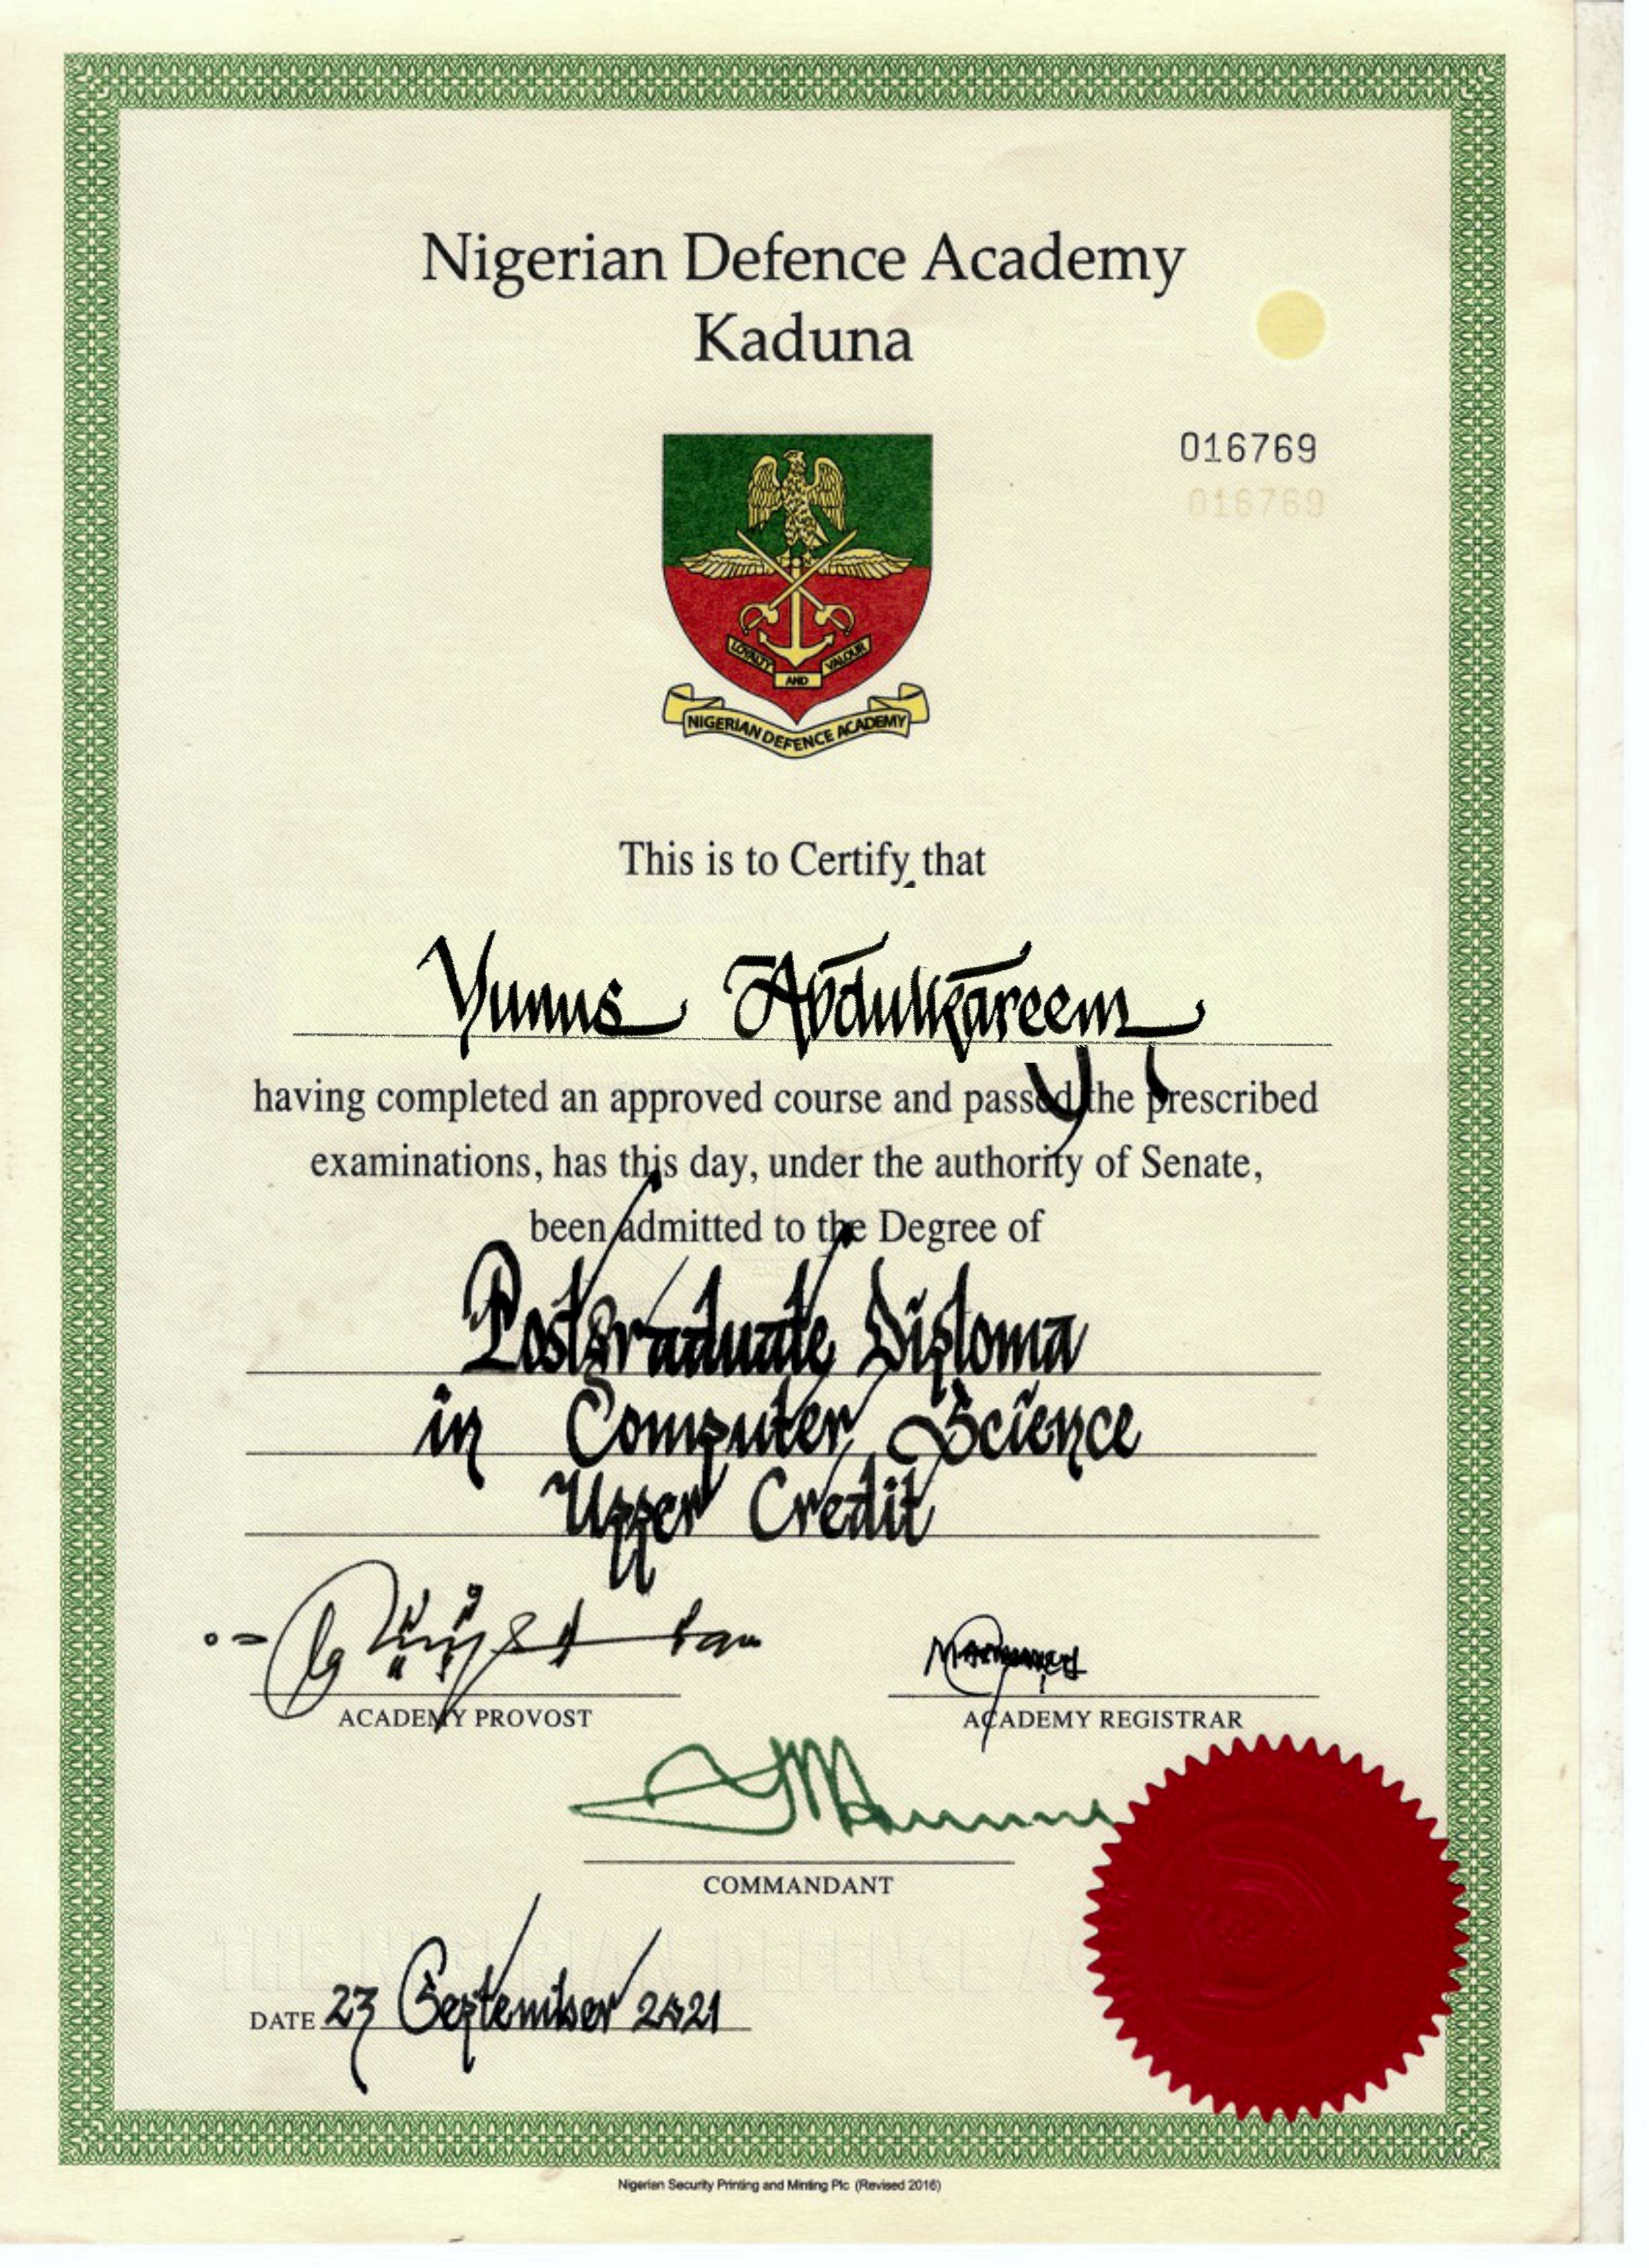 Nigerian Defence Academy
Kaduna
016769
016769
LOYALTY AND VALOUR
NIGERIAN DEFENCE ACADEMY
This is to Certify that
Yunus Abdulkareem
having completed an approved course and passed the prescribed
examinations, has this day, under the authority of Senate,
been admitted to the Degree of
Postgraduate Diploma
in Computer Science
Upper Credit
ACADEMY PROVOST
ACADEMY REGISTRAR
COMMANDANT
THE NIGERIAN DEFENCE AC
DATE 23 September 2021
Nigerian Security Printing and Minting Plc (Revised 2016)